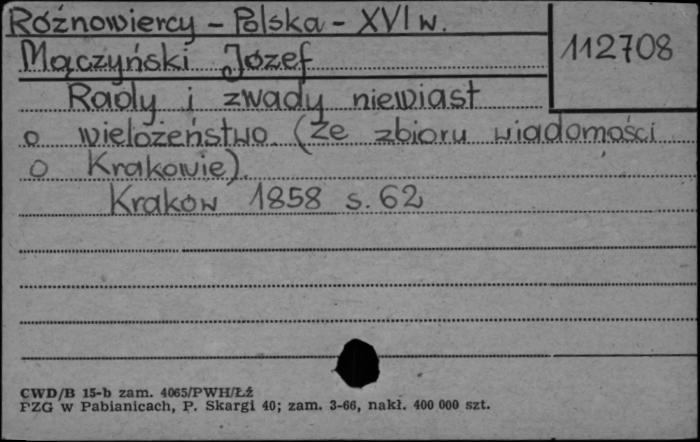 Różnowiercy - Polska - XVI w.
112708
Mączyński Józef
Rady i zwady niewiast
o wielożeństwo. (Ze zbioru wiadomości
o Krakowie).
Kraków 1858 s. 62
CWD/B 15-b zam. 4065/PWH/Łź
PZG w Pabianicach, P. Skargi 40; zam. 3-66, nakł. 400 000 szt.